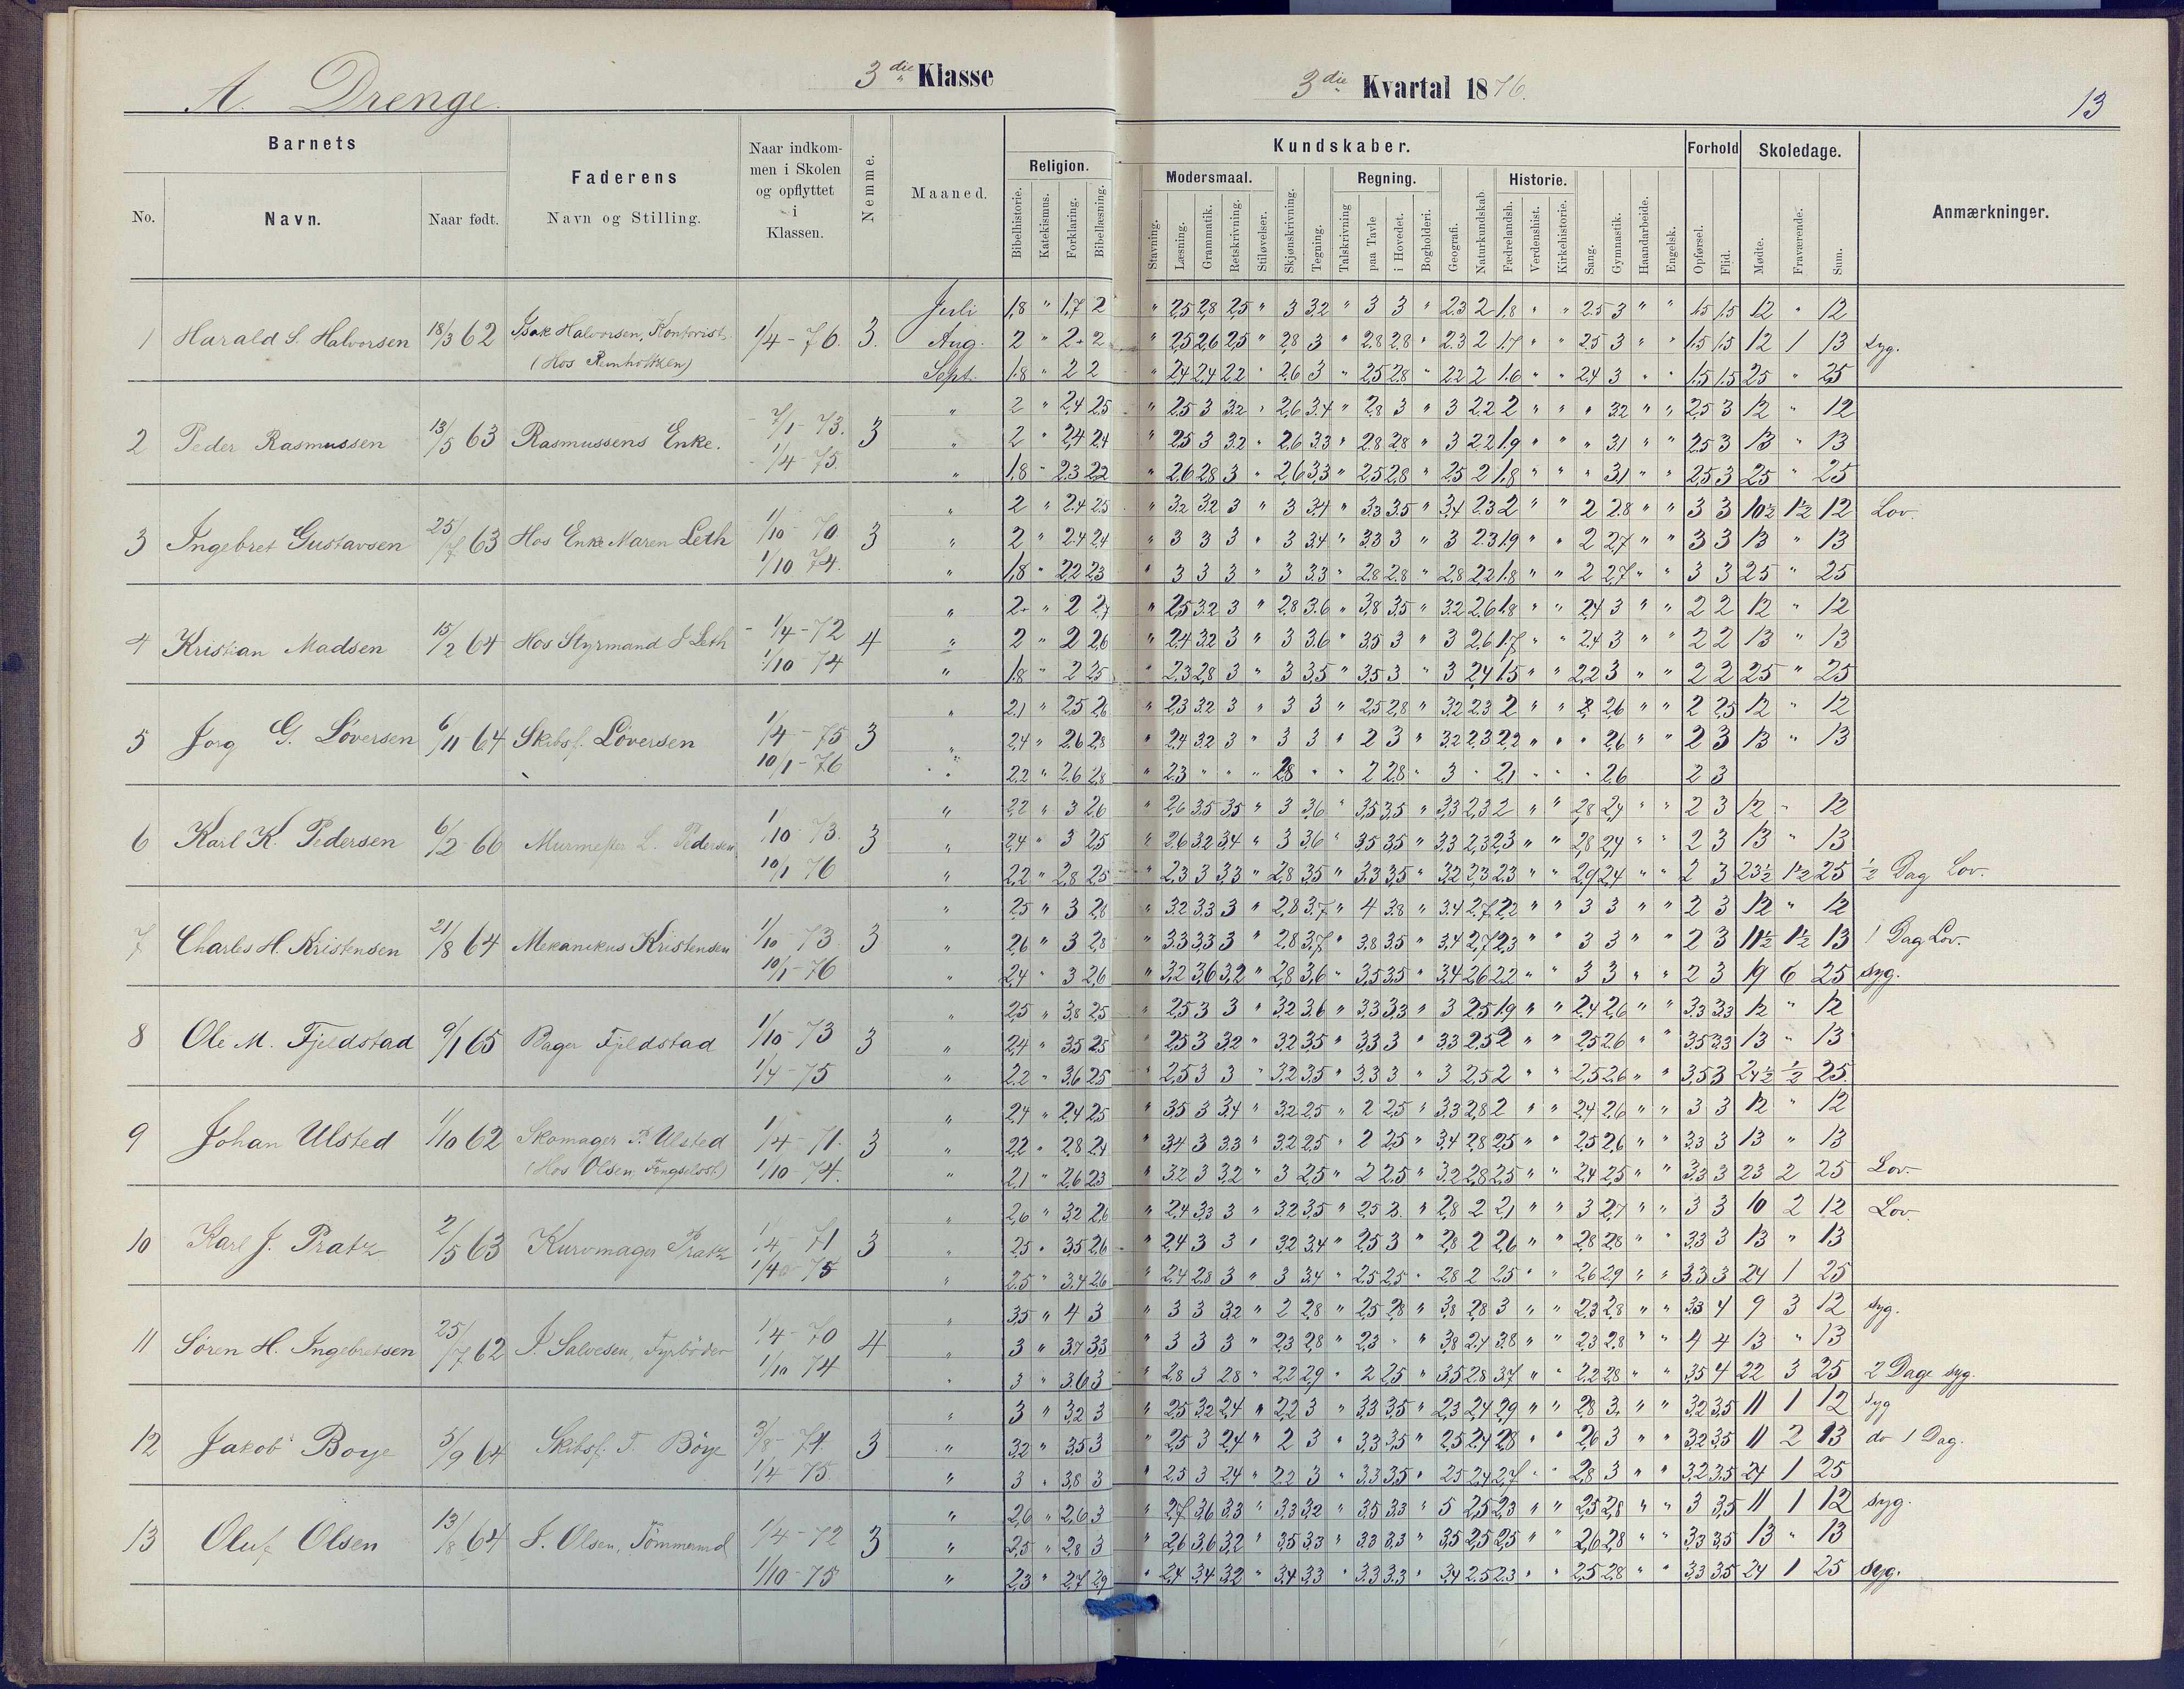 A. Drenge.
3die Klasse
3die Kvartal 1876.
13
Barnets
No.
Navn.
Naar født.
Faderens
Navn og Stilling.
Naar indkommen i Skolen og opflyttet i Klassen.
Nemme.
Maaned.
Religion.
Bibelhistorie.
Katekismus.
Forklaring.
Bibellæsning.
Kundskaber.
Modersmaal.
Stavning.
Læsning.
Grammatik.
Retskrivning.
Stiløvelser.
Skjønskrivning.
Tegning.
Regning.
Talskrivning
paa Tavle
i Hovedet.
Bogholderi.
Geografi.
Naturkundskab
Historie.
Fædrelandsh.
Verdenshist.
Kirkehistorie.
Sang.
Gymnastik.
Haandarbeide.
Engelsk.
Forhold
Opførsel.
Flid.
Skoledage.
Mødte.
Fraværende.
Sum.
Anmærkninger.
1 Harald S. Halvorsen 18/3 62 Isak Halvorsen, Kontorist 1/4-76. 3.
Juli 1,8 " 1,7 2 " 2,5 2,8 2,5 " 3 3,2 " 3 3 " 2,3 2 1,8 " " 2,5 3 " " 1,5 1,5 12 " 12
Aug. 2 " 2 2 " 2,5 2,6 2,5 " 2,8 3 " 2,8 2,8 " 2,3 2 1,7 " " 2,5 3 " " 1,5 1,5 12 1 13 syg.
Sept. 1,8 " 2 2 " 2,4 2,4 2,2 " 2,6 3 " 2,5 2,8 " 2,2 2 1,6 " " 2,4 3 " " 1,5 1,5 25 " 25
2 Peder Rasmussen 13/5 63 Rasmussens Enke. 7/1-73. 1/4-75. 3
" 2 " 2,4 2,5 " 2,5 3 3,2 " 2,6 3,4 " 2,8 3 " 3 2,2 2 " " " 3,2 " " 2,5 3 12 " 12
" 2 " 2,4 2,4 " 2,5 3 3,2 " 2,6 3,3 " 2,8 2,8 " 3 2,2 1,9 " " " 3,1 " " 2,5 3 13 " 13
" 1,8 " 2,3 2,2 " 2,6 2,8 3 " 2,6 3,3 " 2,5 2,8 " 2,5 2 1,8 " " " 3,1 " " 2,5 3 25 " 25
3 Ingebret Gustavsen 25/7 63 Hos Enke Maren Leth 1/10-70 1/10 74. 3
" 2 " 2,4 2,5 " 3,2 3,2 3 " 3 3,4 " 3,3 3,5 " 3,4 2,3 2 " " 2 2,8 " " 3 3 10½ 1½ 12 Lov.
" 2 " 2,4 2,4 " 3 3 3 " 3 3,4 " 3,3 3 " 3 2,3 1,9 " " 2 2,7 " " 3 3 13 " 13
" 1,8 " 2,2 2,3 " 3 3 3 " 3 3,3 " 2,8 2,8 " 2,8 2,2 1,8 " " 2 2,7 " " 3 3 25 " 25
4 Kristian Madsen 15/2 64 Hos Styrmand J Leth 1/4-72 1/10-74 4
" 2 " 2 2,7 " 2,5 3,2 3 " 2,8 3,6 " 3,8 3,5 " 3,2 2,6 1,8 " " 2,4 3 " " 2 2 12 " 12
" 2 " 2 2,6 " 2,4 3,2 3 " 3 3,6 " 3,5 3 " 3 2,6 1,7 " " 2,4 3 " " 2 2 13 " 13
" 1,8 " 2 2,5 " 2,3 2,8 3 " 3 3,5 " 3,5 3 " 3 2,4 1,5 " " 2,2 3 " " 2 2 25 " 25
5 Jørg G. Løversen 6/11-64 Skibsf. Løversen 1/4-75 10/1-76 3
" 2,1 " 2,5 2,6 " 2,3 3,2 3 " 3 3 " 2,5 2,8 " 3,2 2,3 2 " " 2,6 " " 2 2,5 12 " 12
" 2,4 " 2,6 2,8 " 2,4 3,2 3 " 3 3 " 2 3 " 3,2 2,3 2,2 " " " 2,6 " " 2 3 13 " 13
" 2,2 " 2,6 2,8 " 2,3 " " " 2,8 " " 2 2,8 " 3 " 2,1 " " " 2,6 2 3
6 Karl K. Pedersen 6/2-66 Murmester L. Pedersen 1/10-73. 10/1 76 3
" 2,2 " 3 2,6 " 2,6 3,5 3,5 " 3 3,6 " 3,5 3,5 " 3,3 2,3 2 " " 2,8 2,4 " " 2 3 12 " 12
" 2,4 " 3 2,5 " 2,6 3,2 3,4 " 3 3,6 " 3,5 3,5 " 3,3 2,3 2,3 " " 2,8 2,4 " " 2 3 13 " 13
" 2,2 " 2,8 2,5 " 2,3 3 3,3 " 2,8 3,5 " 3,3 3,5 " 3,2 2,3 2,3 " " 2,9 2,4 " " 2 3 23½ 1½ 25 ½ Dag Lov.
7 Charles H. Kristensen 21/8 64 Mekanikus Kristensen 1/10-73 10/1-76 3
" 2,5 " 3 2,8 " 3,2 3,3 3 " 2,8 3,7 " 4 3,8 " 3,4 2,7 2,2 " " 3 3 " " 2 3 12 " 12
" 2,6 " 3 2,8 " 3,3 3,3 3 " 2,8 3,7 " 3,8 3,5 " 3,4 2,7 2,3 " " 3 3 " " 2 3 11½ 1½ 13 1 Dag Lov.
" 2,4 " 3 2,6 " 3,2 3,6 3,2 " 2,8 3,6 " 3,5 3,5 " 3,4 2,6 2,2 " " 3 3 " " 2 3 19 6 25 syg.
8 Ole M. Fjeldstad 9/1 65 Bager Fjeldstad 1/10-73 1/4-75 3
" 2,5 " 3,8 2,5 " 2,5 3 3 " 3,2 3,6 " 3,3 3,3 " 3 2,5 1,9 " " 2,4 2,6 " " 3,3 3,3 12 " 12
" 2,4 " 3,5 2,5 " 2,5 3 3,2 " 3,2 3,5 " 3,3 3 " 3,3 2,5 2 " " 2,5 2,6 " " 3,5 3,3 13 " 13
" 2,2 " 3,6 2,5 " 2,5 3 3 " 3,2 3,5 " 3,3 3 " 3 2,5 2 " " 2,5 2,6 " " 3,5 3 24½ ½ 25.
9 Johan Ulsted 1/10 62 Skomager P. Ulsted 1/4-71. 1/10-74. 3
" 2,4 " 2,4 2,5 " 3,5 3 3,4 " 3,2 2,5 " 2 2,5 " 3,3 2,8 2 " " 2,4 2,6 " " 3 3 12 " 12
" 2,2 " 2,8 2,4 " 3,4 3 3,3 " 3,2 2,5 " 2 2,5 " 3,4 2,8 2,5 " " 2,5 2,6 " " 3,3 3 13 " 13
" 2,1 " 2,6 2,3 " 3,2 3 3,2 " 3 2,5 " 2 2,5 " 3,2 2,8 2,5 " " 2,4 2,5 " " 3,3 3 23 2 25 Lov.
10 Karl J. Pratz 2/5 63 Kurvmager Pratz 1/4-71 3
" 2,6 " 3,2 2,6 " 2,4 3,3 3 " 3,2 3,5 " 2,5 3 " 2,8 2 2,1 " " 3 2,7 " " 3 3 10 2 12 Lov.
" 2,5 " 3,5 2,6 " 2,4 3 3 " 3,2 3,4 " 2,5 3 " 2,8 2 2,6 " " 2,8 2,8 " " 3,3 3 13 " 13
" 2,5 " 3,4 2,6 " 2,4 2,8 3 " 3 3,4 " 2,5 2,5 " 2,8 2 2,5 " " 2,6 2,9 " " 3,3 3 24 1 25
11 Søren H. Ingebretsen 25/7 62 J. Salvesen, Fyrbøder 1/4-70 1/10 74 4
" 3,5 " 4 3 " 3 3 3,2 " 2 2,8 " 2,5 2,8 " 3,8 2,8 3 " " 2,3 2,8 " " 3,3 4 9 3 12 syg.
" 3 " 3,7 3,3 " 3 3 3 " 2,3 2,8 " 2,3 " " 3,8 2,7 3,8 " " 2,3 2,8 " " 4 4 13 " 13
" 3 " 3,6 3 " 2,8 3 2,8 " 2,2 2,9 " 2 2,5 " 3,5 2,8 3,7 " " 2,2 2,8 " " 3,5 4 22 3 25 2 Dage syg.
12 Jakob Boye 5/9 64 Skibsf. T. Böye 3/8-74 1/4-75. 3
" 3 " 3,2 3 " 2,5 3,2 2,4 " 2,2 3 " 3,3 3,5 " 2,3 2,4 2,9 " " 2,8 3 " " 3,2 3,5 11 1 12 syg
" 3,2 " 3,5 3 " 2,5 3 2,4 " 2 3 " 3,3 3,5 " 2,5 2,4 2,8 " " 2,6 3 " " 3,2 3,5 11 2 13 do 1 Dag.
" 3 " 3,8 3 " 2,5 3 2,4 " 2,2 3 " 3,3 3,5 " 2,5 2,4 2,7 " " 2,8 3 " " 3,2 3,5 24 1 25
13 Oluf Olsen 13/8 64 J. Olsen, Tømmermd 1/4-72 1/10-75 3
" 2,6 " 2,6 3 " 2,7 3,6 3,3 " 3,3 3,2 " 3,5 3,3 " 5 2,5 2,3 " " 2,5 2,8 " " 3 3,5 11 1 12 syg.
" 2,5 " 2,8 3 " 2,6 3,6 3,2 " 3,5 3,3 " 3,3 3,3 " 3,5 2,5 2,5 " " 2,6 2,8 " " 3,3 3,5 13 " 13
" 2,3 " 2,7 2,9 " 2,4 3,4 3,2 " 3,4 3,3 " 3,3 3,3 " 3,4 2,5 2,3 " " 2,5 2,8 " " 3,3 3,5 24 1 25 syg.